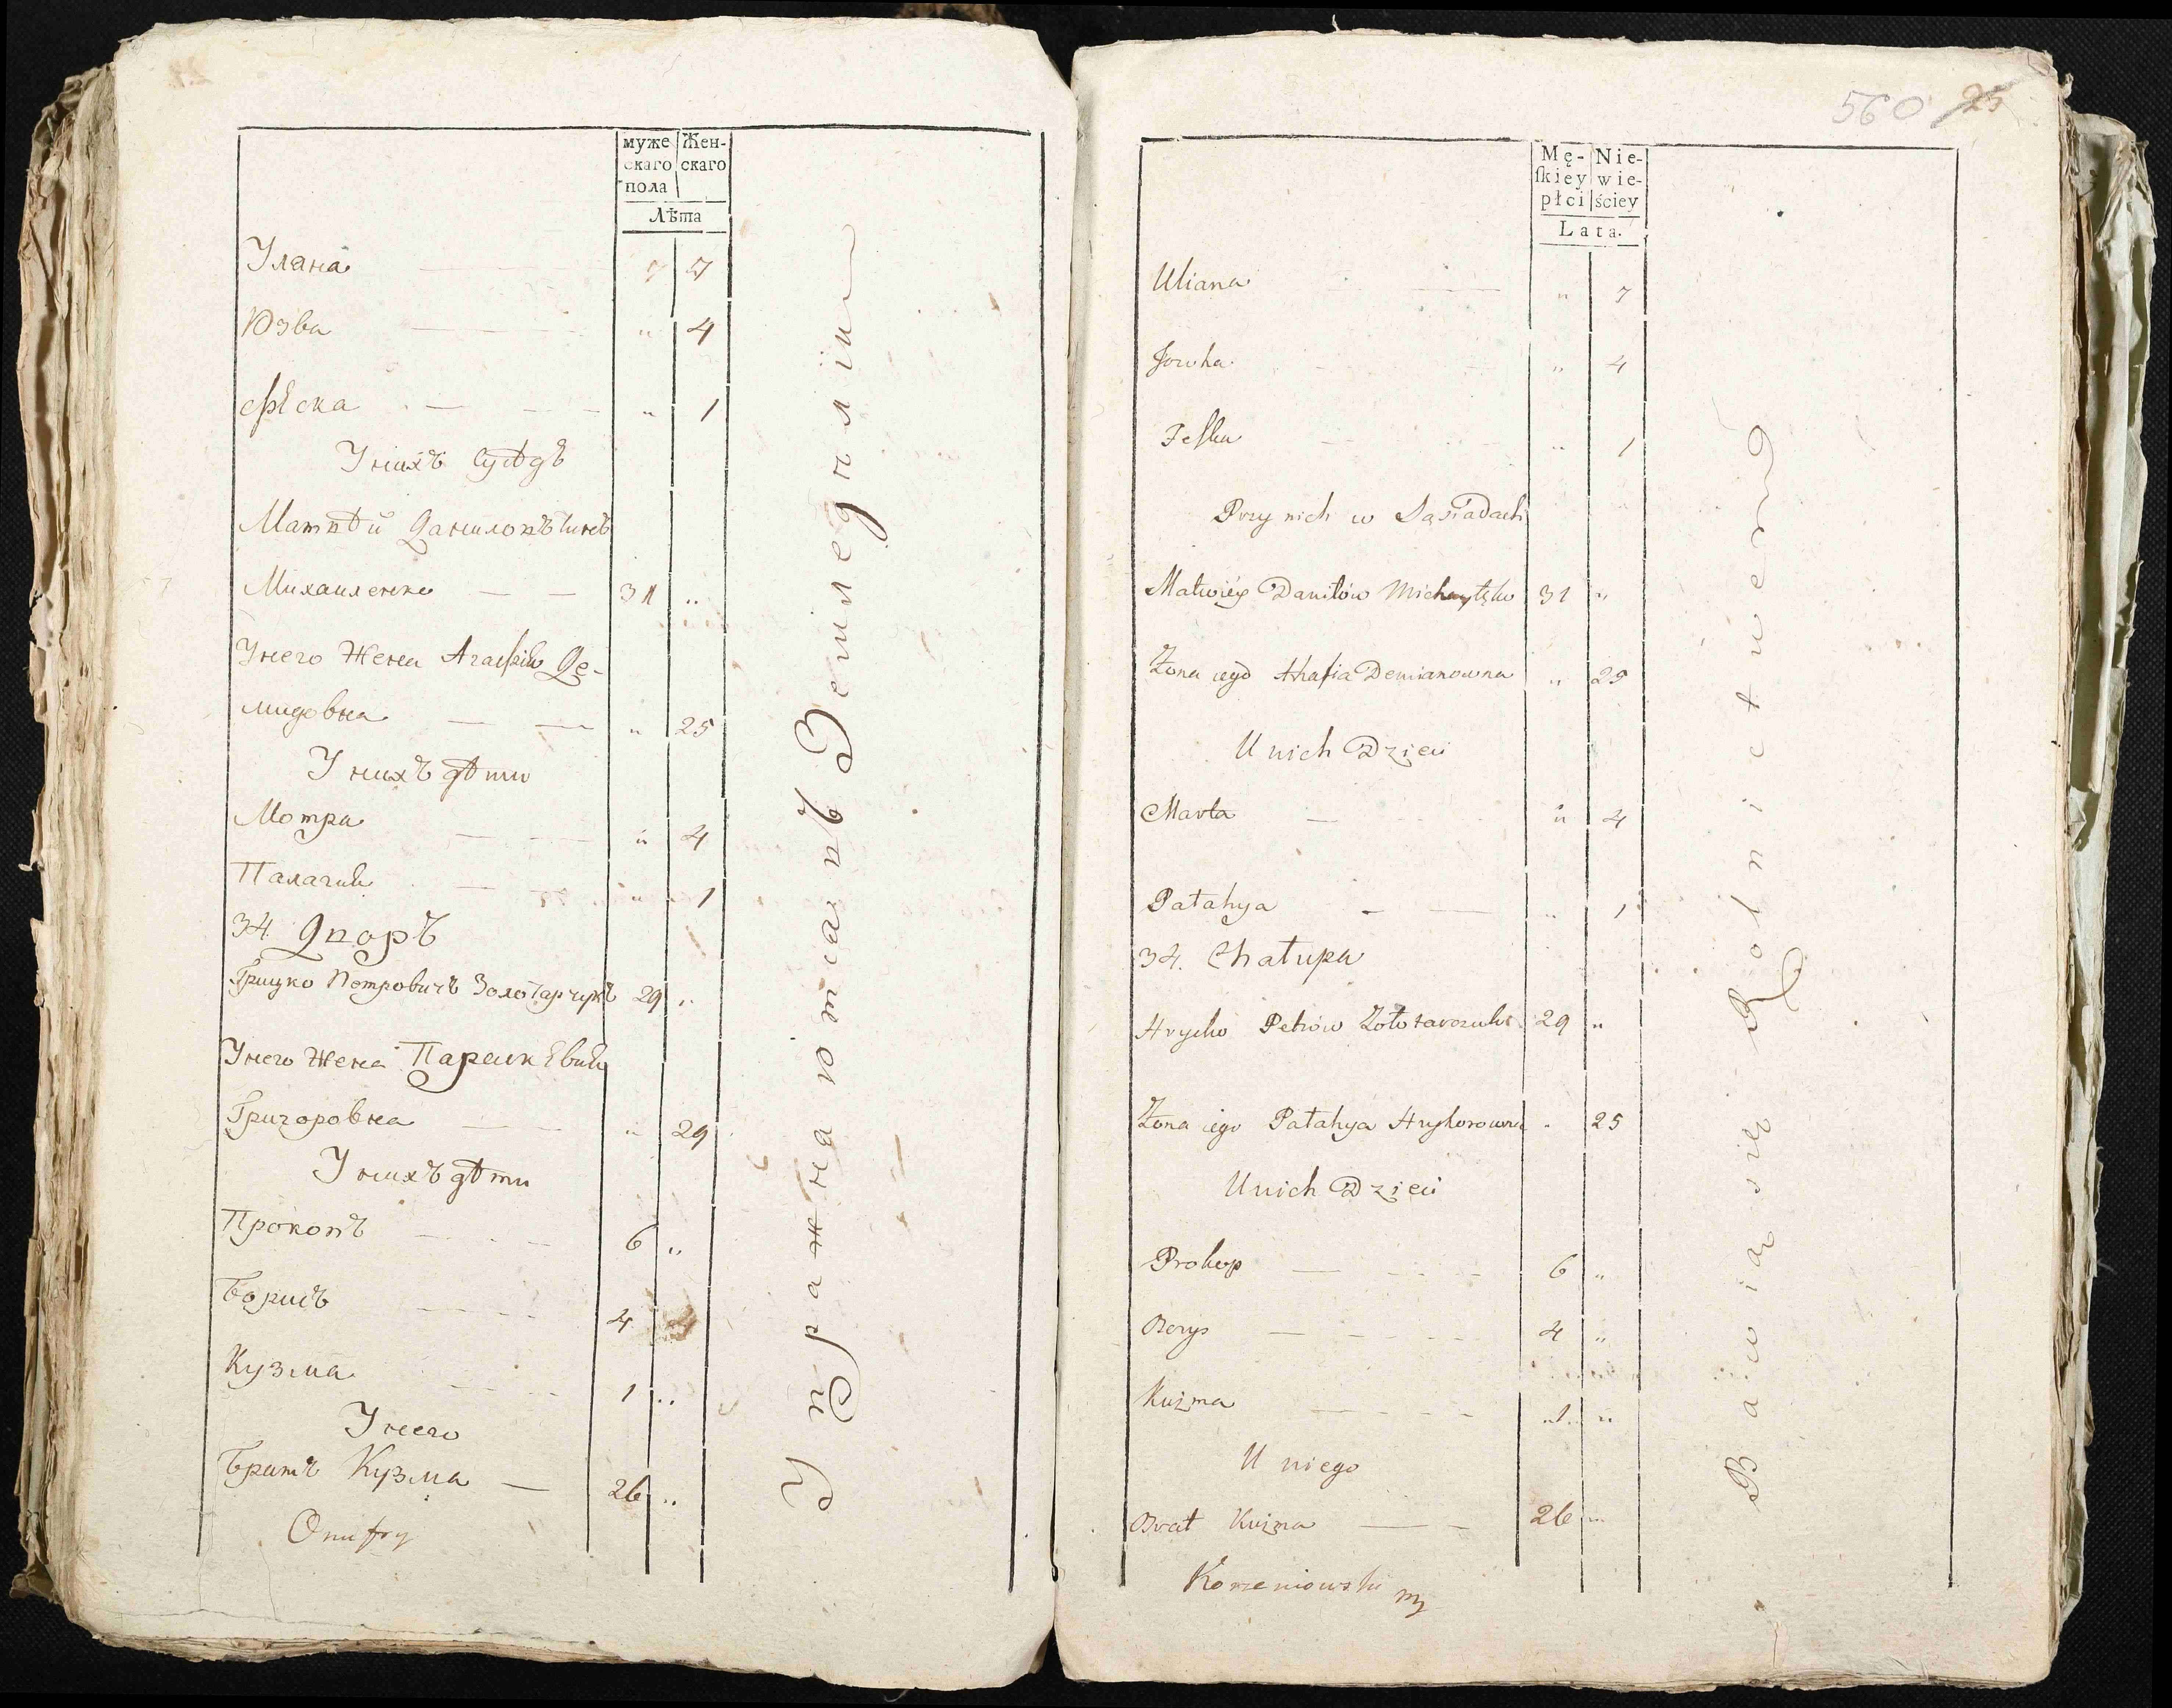 муже
скаго
пола
Жен-
скаго
Лѣта
Улана 7 7
Юзва " 4
Ѳѣска " 1
У нихъ Сусѣдъ
Матвѣй Даниловъ Синъ
Михаиленко 31 "
У него Жена Агафия Де-
мидовна " 25
У нихъ дѣти
Мотра " 4
Палагия " 1
34. Дворъ
Грицко Петровичъ Золотарчукъ 29 "
У него Жена Параскевия
Григоровна " 29
У нихъ дѣти
Прокопъ 6 "
Борисъ 4
Кузма 1 "
У него
Братъ Кузма 26 "
Onufry
Упражнаютца въ Земледѣлии
560 25
Mę-
skiey
płci
Nie-
wie-
ściey
Lata.
Uliana " 7
Jowha " 4
Feska " 1
Przy nich w Sąsiadach
Matwiéy Daniłów Michayłęko 31 "
Zona iego Ahafia Demianowna " 25
U nich Dzieci
Marta " 4
Pałahya " 1
34. Chałupa
Hrycko Petrów Zołotarczuk 29 "
Zona iego Pałahya Hryhorowna " 25
U nich Dzieci
Prokop 6 "
Borys 4 "
Kuzma 1 "
U niego
Brat Kuzma 26 "
Korzeniowski
Bawią się Rolnictwem